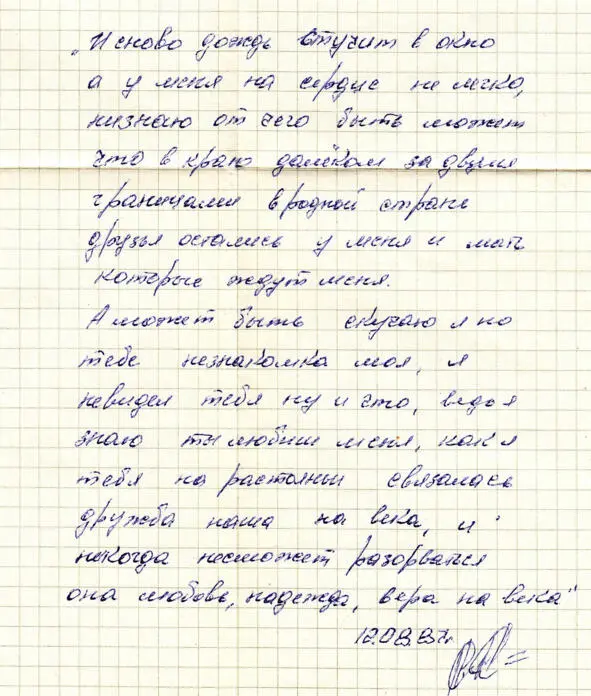 „И сново дождь стучит в окно
а у меня на сердце не легко,
низнаю от чего быть может
что в краю далёком за двумя
границами в родной стране
друзья остались у меня и мать
которые ждут меня.
А может быть скучаю я по
тебе незнакомка моя, я
невидел тебя ну и что, ведь я
знаю ты любиш меня, как я
тебя на растояньи связалась
дружба наша на века, и
некогда несможет разорваться
она любовь, надежда, вера на века"
12.08.87г.